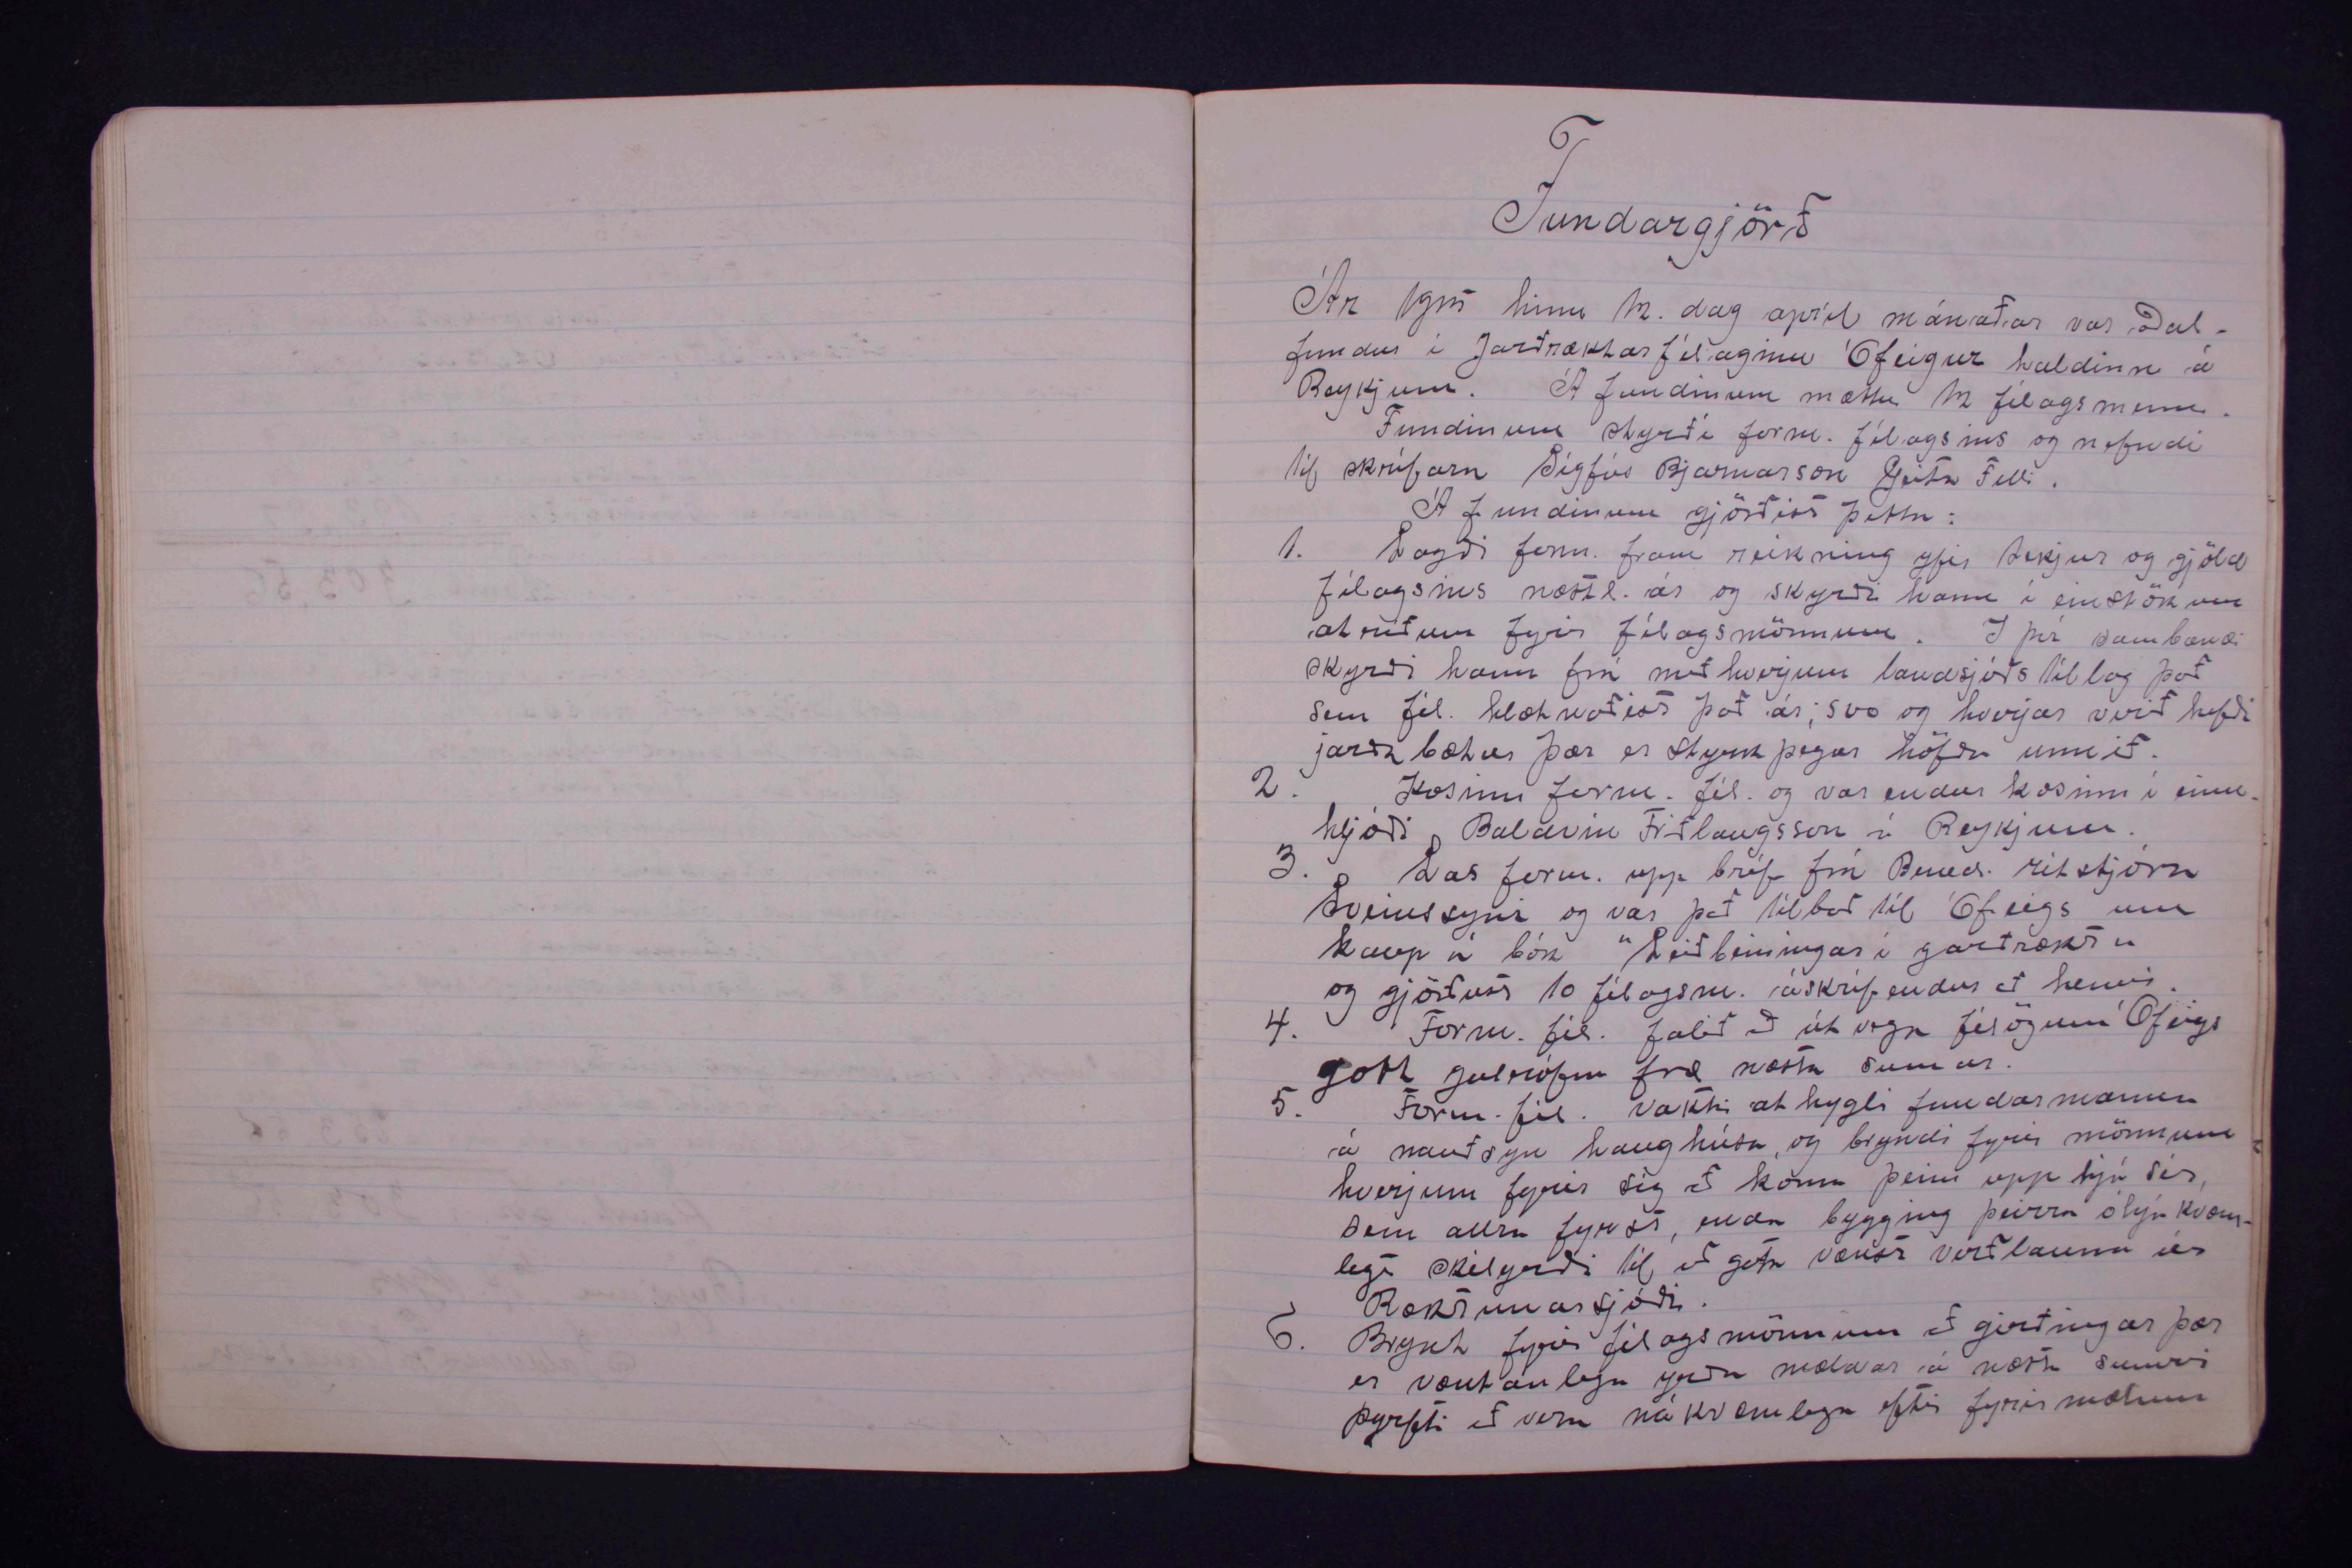 Fundargjörð
Ár hinn 12. dag apríl mánaðar var Aðal-
fundur i Jarðræktarfélaginu Ófeigur haldinn á
Reykjum. Á fundinum mættu 12 félagsmenn.
Fundinum styrði form. félagsins og nefndi
til skrifara Sigfús Bjarnarson Geita Felli.
Á fundinum gjörðist þetta:
1. Lagði form. fram reikning yfir tekjur og gjöld
félagsins næstl. ár og skyrði hann i einstökum
atriðum fyrir félagsmönnum. I því sambandi
skyrði hann frá með hverjum landsjóðs tillag það
sem fél. hlotnaðist það ár; svo og hverjar verið hefði
jarða bætur þær er styrk þegar höfðu unnið.
2. Kosinn form. fél. og var endur kosinn i einu-
hljóði Baldvin Friðlaugsson á Reykjum.
3. Las form. upp bréf frá Bened. ritstjóra
Sveinssyni og var það tilboð til Ófeigs um
kaup á bók "Leiðbeiningar i garðrækt"
og gjörðust 10 félagsm. áskrifendur að henni.
4. Form. fél. falið að útvega félögum Ófeigs
gott gulrófna fræ næsta sumar.
5. Form. fél. vakti athygli fundarmanna
á nauðsyn haughúsa, og bryndi fyrir mönnum
hverjum fyrir sig að koma þeim upp hjá sér,
sem allra fyrst, enda bygging þeirra óhjákvæm-
legt skilyrði til að geta vænst verðlauna úr
Ræktunarsjóði.
6. Brynt fyrir félagsmönnum að girðingar þær
er væntanlega yrðu mældar á næsta sumri
þyrfti að vera nákvæmlega eftir fyrirmælum